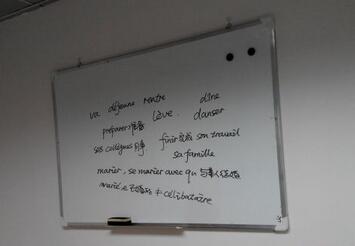 va déjeune rentre dîne
préparer 准备 lève. danser
ses collègues 同事 finir 完成 son travail
sa famille
marier, se marier avec qn 与某人结婚
marié, e 已婚的 ≠ célibataire